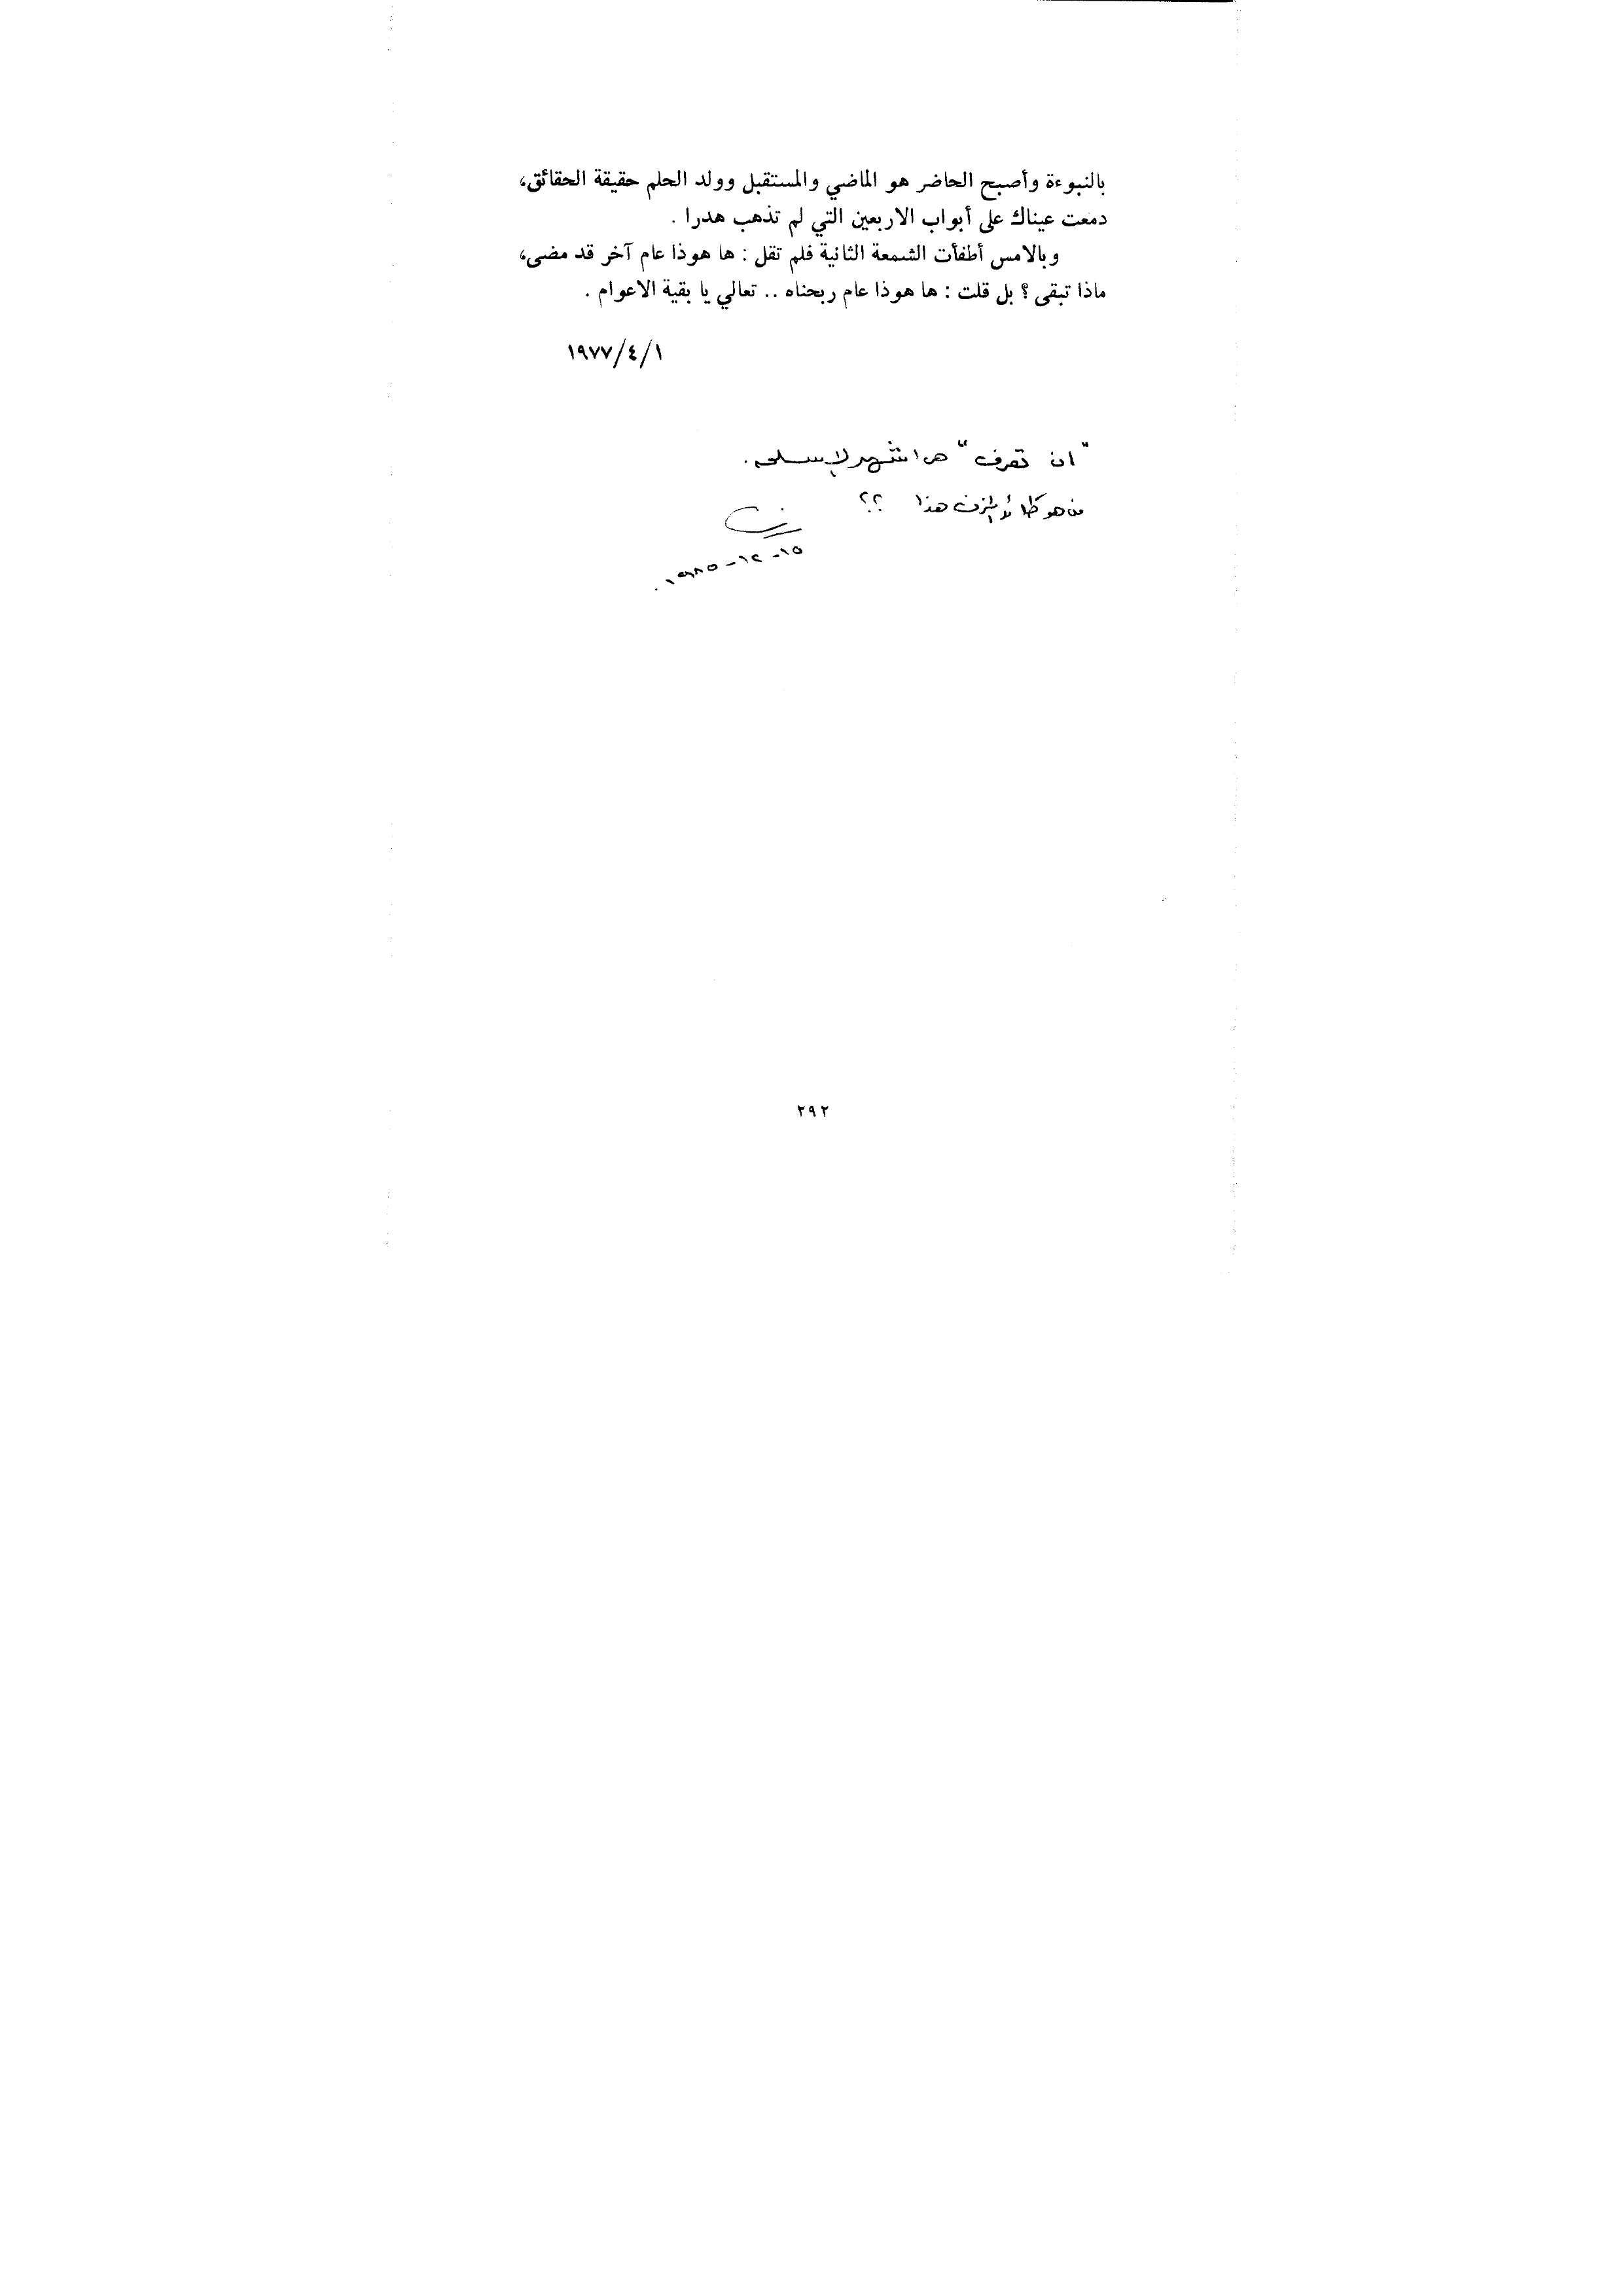 بالنبوءة وأصبح الحاضر هو الماضي والمستقبل وولد الحلم حقيقة الحقائق،
دمعت عيناك على أبواب الاربعين التي لم تذهب هدرا .
وبالامس أطفأت الشمعة الثانية فلم تقل : ها هوذا عام آخر قد مضى،
ماذا تبقى ؟ بل قلت : ها هوذا عام ربحناه .. تعالي يا بقية الاعوام .
١٩٧٧/٤/١
"ان تعرف"
من هو هذا ؟؟
١٥-١٢-١٩٨٥.
٢٩٢